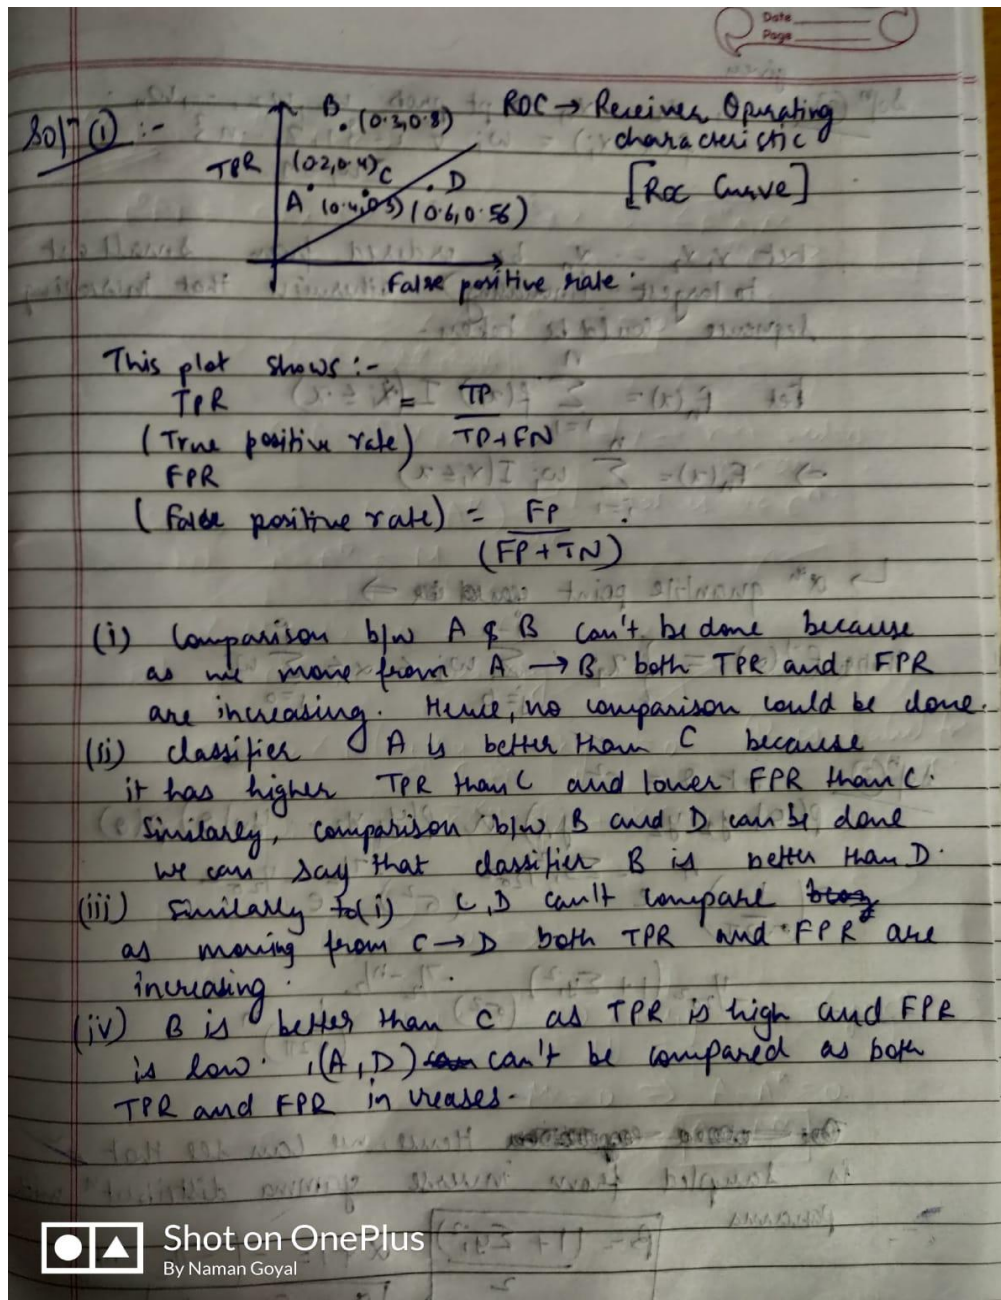 Date
Page
Sol^n ① :-
B (0.3,0.8)
ROC → Receiver Operating
characteristic
[Roc Curve]
TPR
(0.2,0.4) C
D
A (0.4,0.5) (0.6,0.56)
False positive rate.
This plot shows :-
TPR = TP
(True positive rate) TP+FN
FPR
(False positive rate) = FP
(FP+TN)
(i) Comparison b/w A & B can't be done because
as we move from A → B, both TPR and FPR
are increasing. Hence, no comparison could be done.
(ii) classifier A is better than C because
it has higher TPR than C and lower FPR than C.
Similarly, comparison b/w B and D can be done
we can say that classifier B is better than D.
(iii) Similarly to (i) C,D can't compare
as moving from C → D both TPR and FPR are
increasing.
(iv) B is better than C as TPR is high and FPR
is low. , (A,D) can't be compared as both
TPR and FPR increases.
Shot on OnePlus
By Naman Goyal